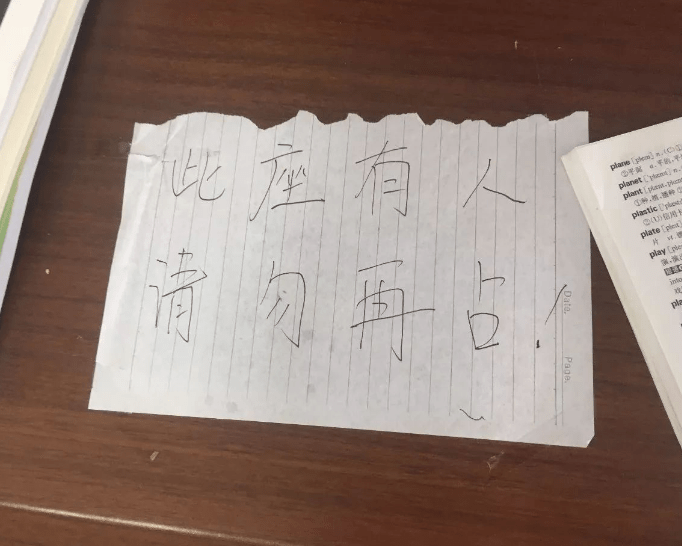 此座有人
请勿再占!
Date.
Page.
plane
planet
plant
plastic
plate
play